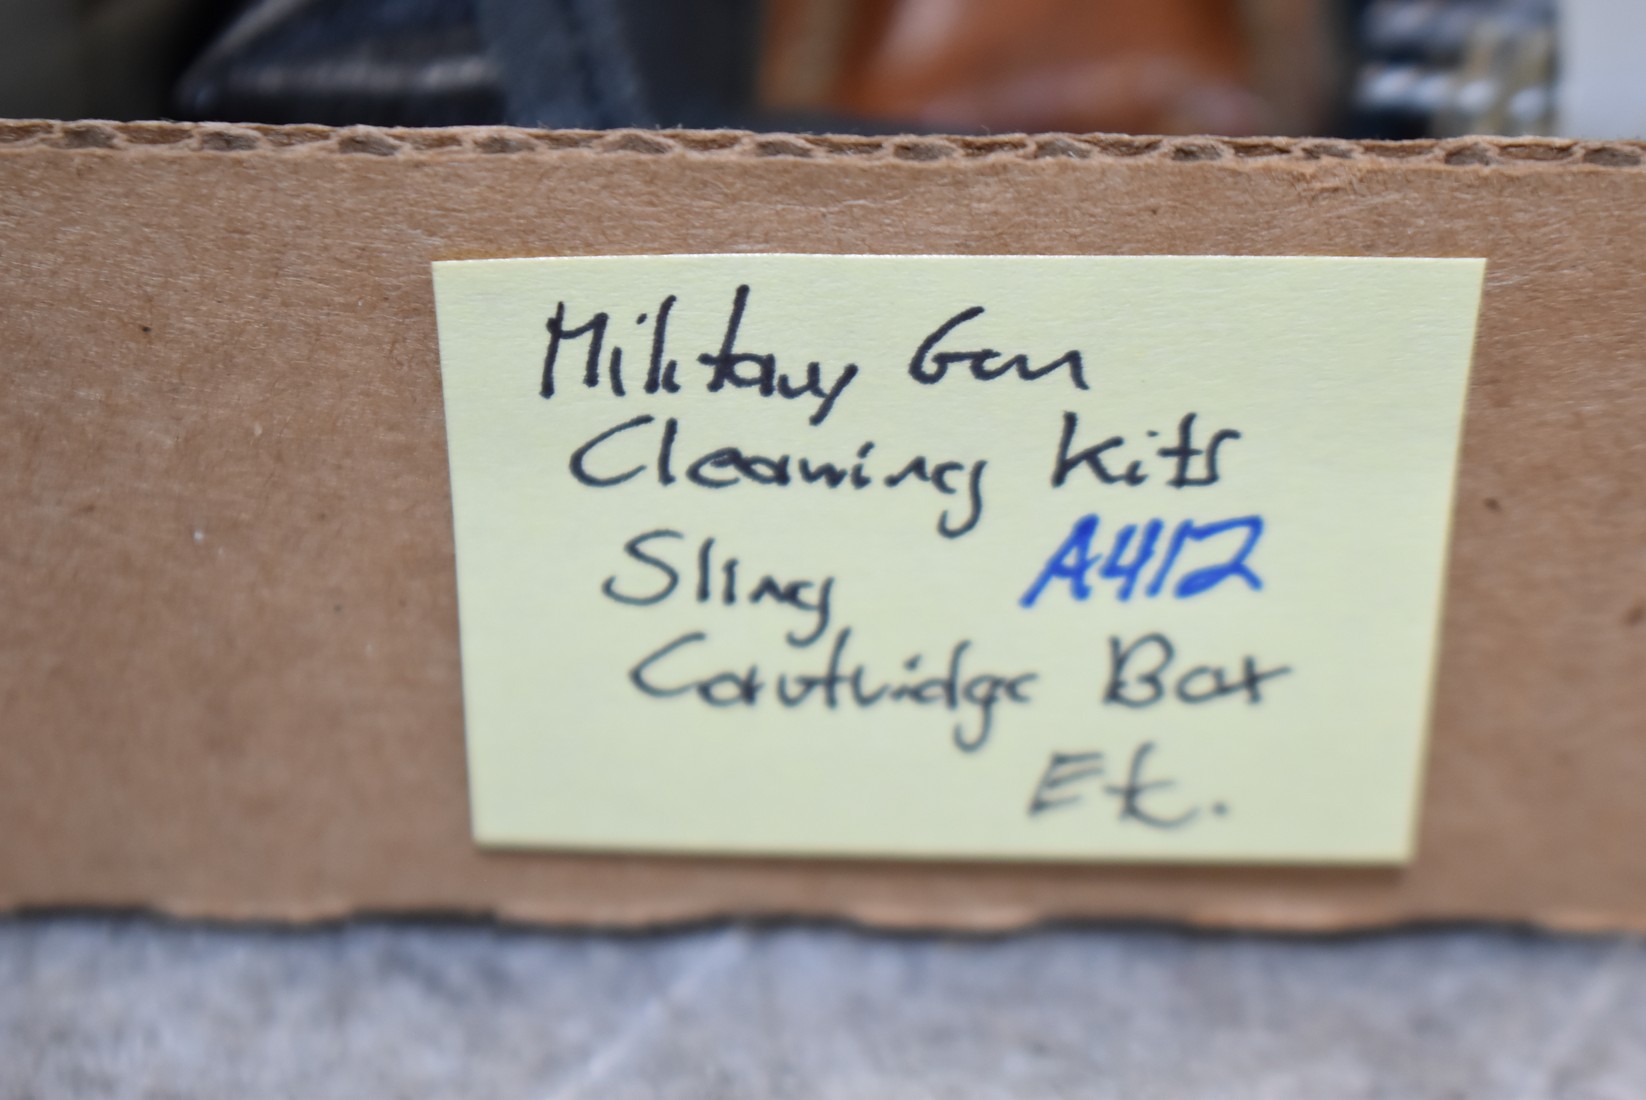 Military Gun
Cleaning Kits
Sling A412
Cartridge Box
Etc.